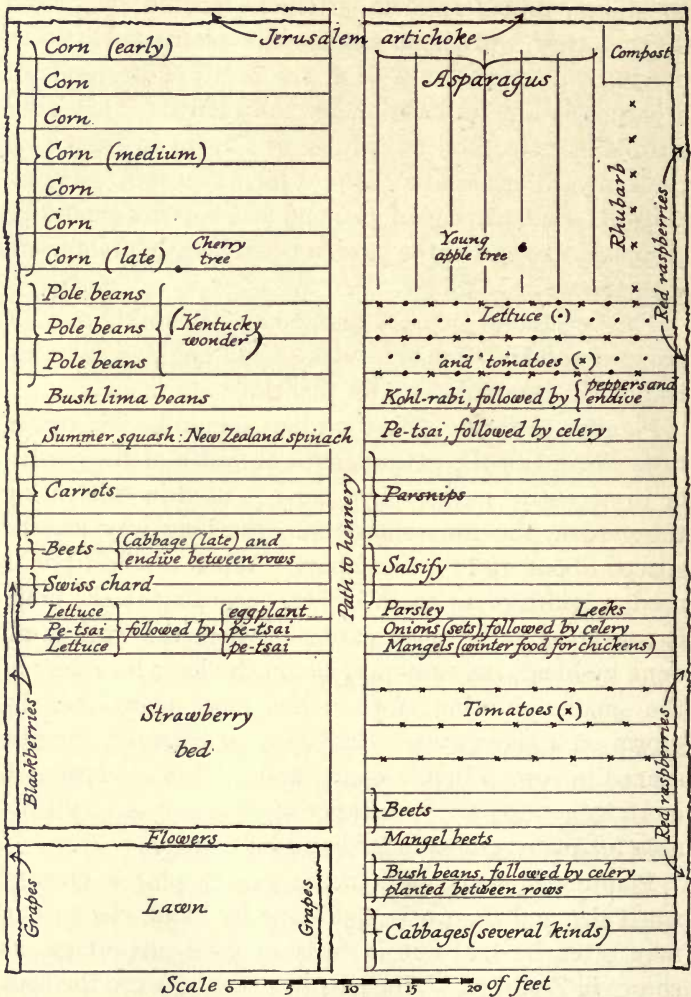 Jerusalem artichoke
Corn (early)
Corn
Corn
Corn (medium)
Corn
Corn
Corn (late)
Cherry
tree
Pole beans
Pole beans
Pole beans
(Kentucky
wonder)
Bush lima beans
Summer squash: New Zealand spinach
Carrots
Beets
(Cabbage (late) and
endive between rows
Swiss chard
Lettuce
Pe-tsai
Lettuce
followed by
eggplant
pe-tsai
pe-tsai
Strawberry
bed
Blackberries
Flowers
Grapes
Lawn
Grapes
Path to hennery
Asparagus
Compost
Rhubarb
Red raspberries
Young
apple tree
Lettuce (•)
and tomatoes (x)
Kohl-rabi, followed by
peppers and
endive
Pe-tsai, followed by celery
Parsnips
Salsify
Parsley Leeks
Onions (sets), followed by celery
Mangels (winter food for chickens)
Tomatoes (x)
Red raspberries
Beets
Mangel beets
Bush beans, followed by celery
planted between rows
Cabbages (several kinds)
Scale 0 5 10 15 20 of feet